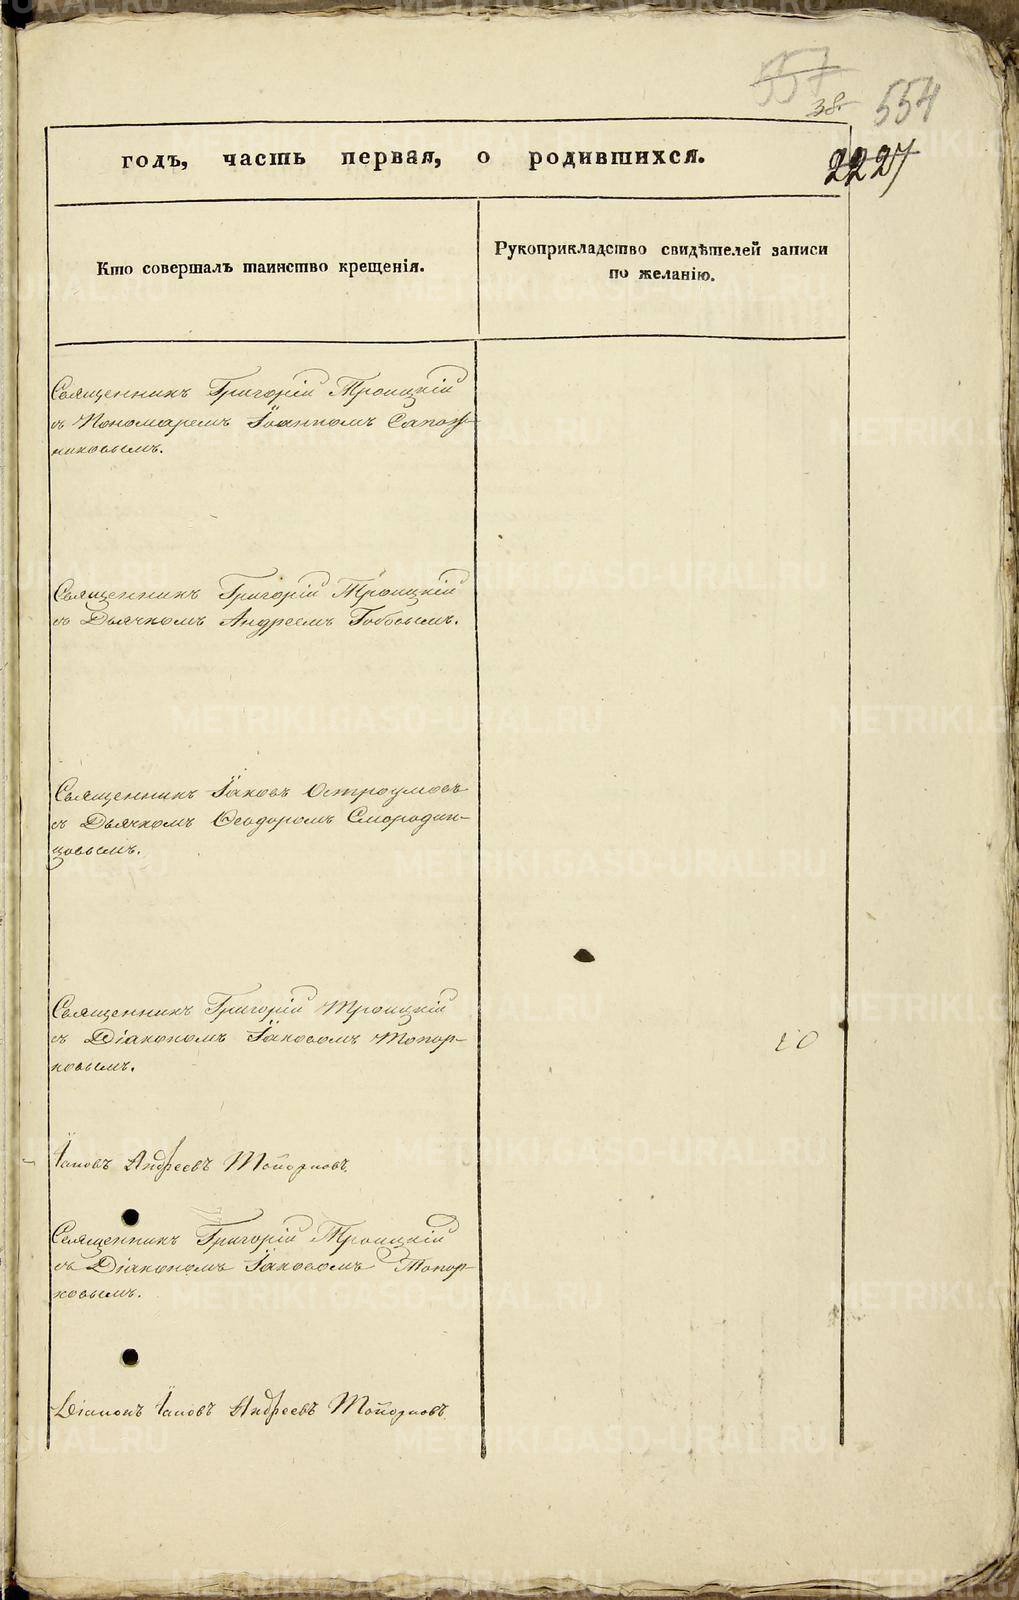 557
38
554
2227
годъ, часть первая, о родившихся.
Кто совершалъ таинство крещенія.
Рукоприкладство свидѣтелей записи
по желанію.
Священникъ Григорій Троицкій
съ Пономаремъ Іоанномъ Сапож-
никовымъ.
Священникъ Григорій Троицкій
съ Дьячкомъ Андреемъ Бобовымъ.
Священникъ Іаковъ Остроумовъ
съ Дьячкомъ Ѳеодоромъ Смородин-
цовымъ.
Священникъ Григорій Троицкій
съ Діакономъ Іаковомъ Топор-
ковымъ.
10
Іаковъ Андреевъ Топорковъ.
Священникъ Григорій Троицкій
съ Діакономъ Іаковомъ Топор-
ковымъ.
Діаконъ Іаковъ Андреевъ Топорковъ
METRIKI.GASO-URAL.RU